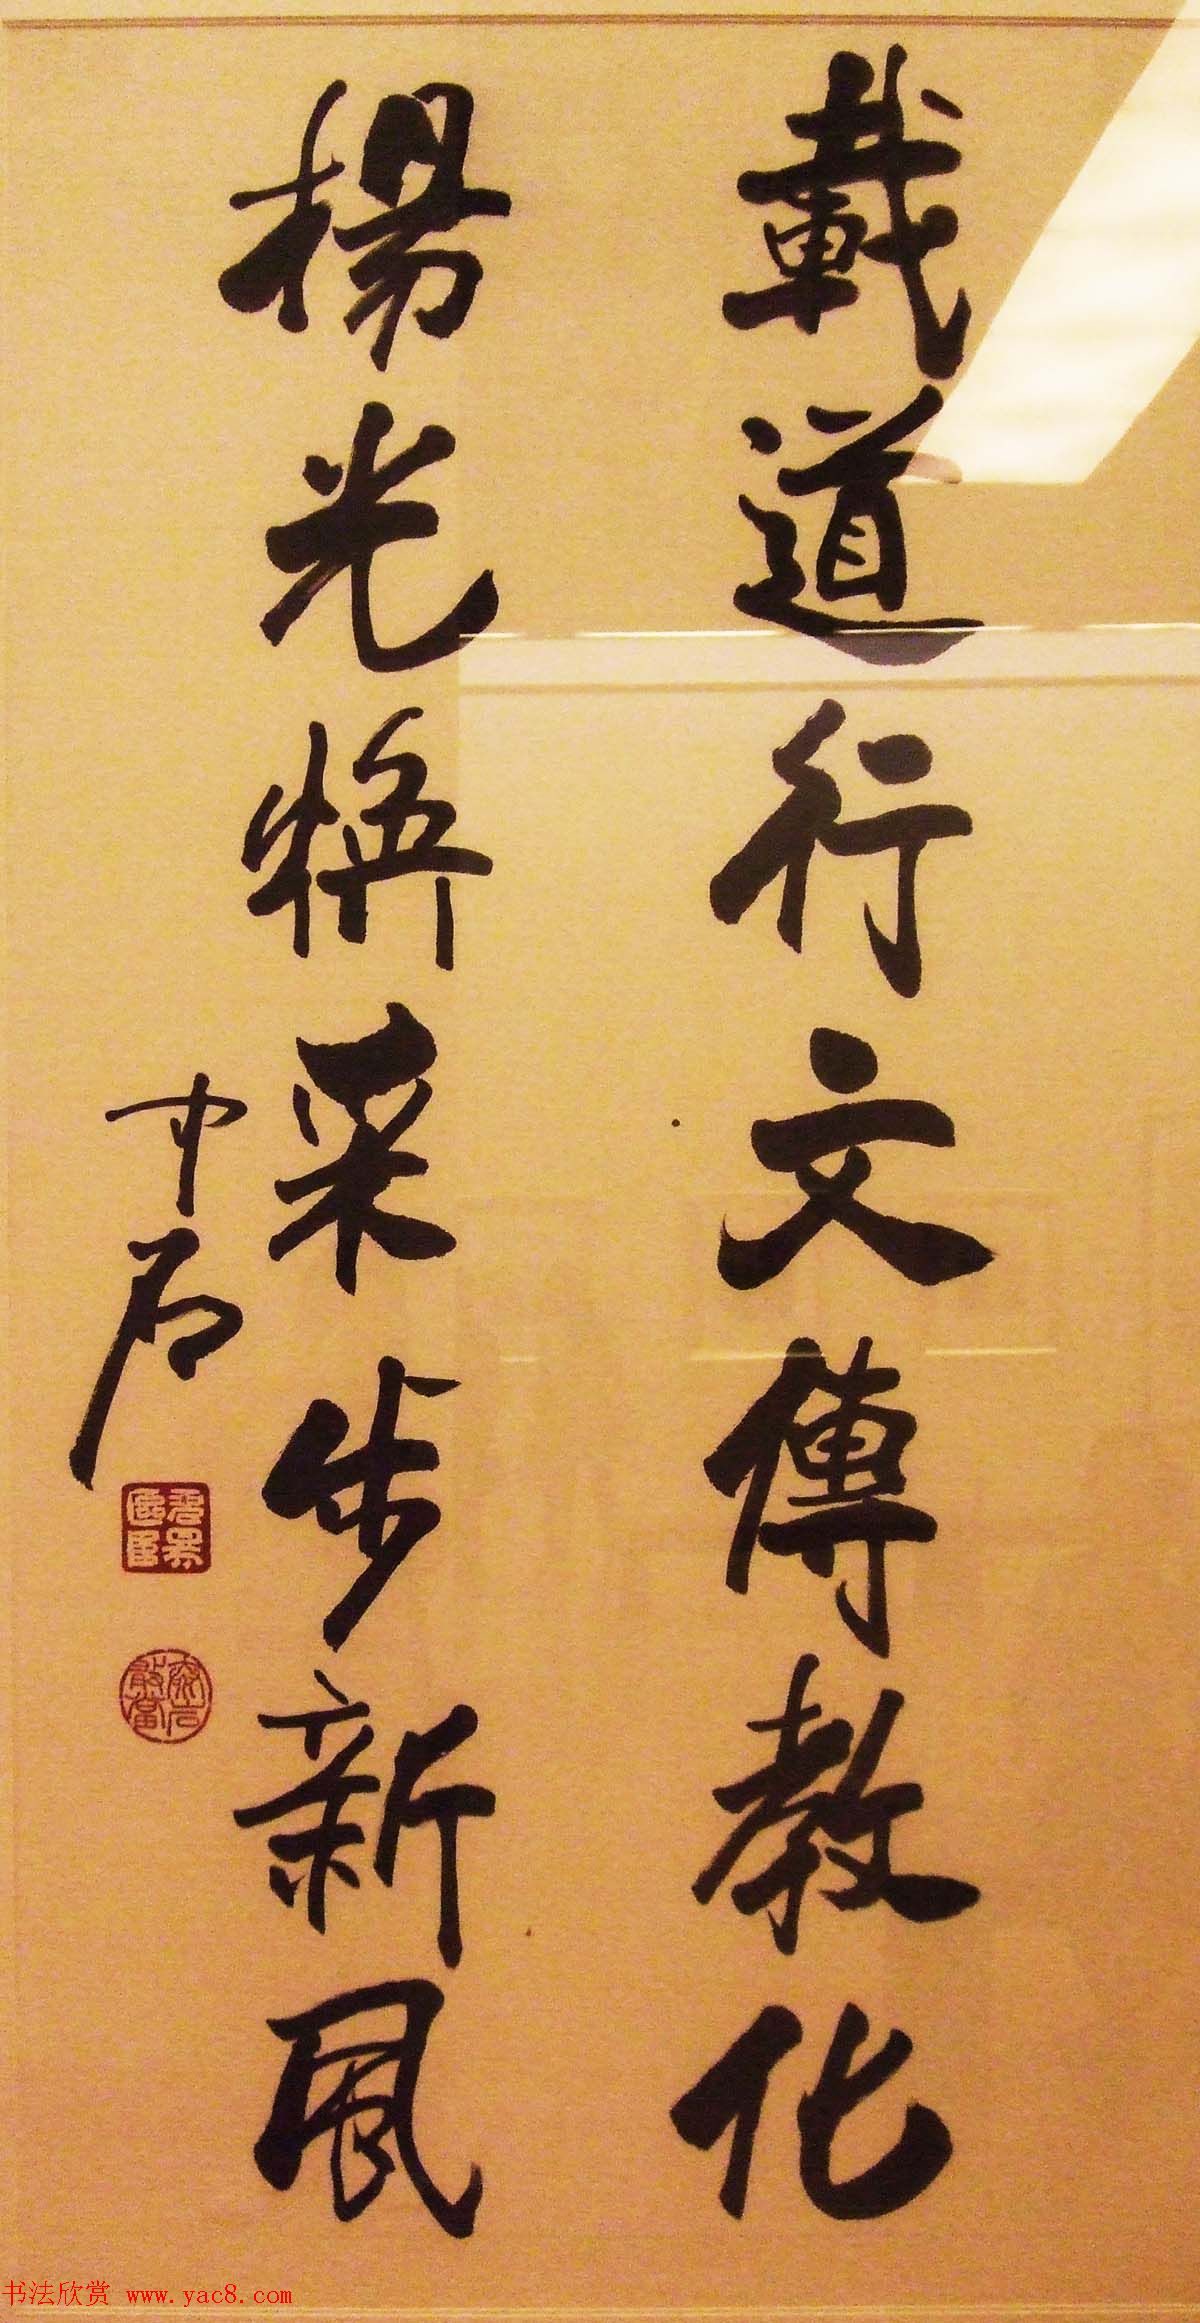 載道行文傳教化
揚光耀采步新風
中石
書法欣赏 www.yac8.com